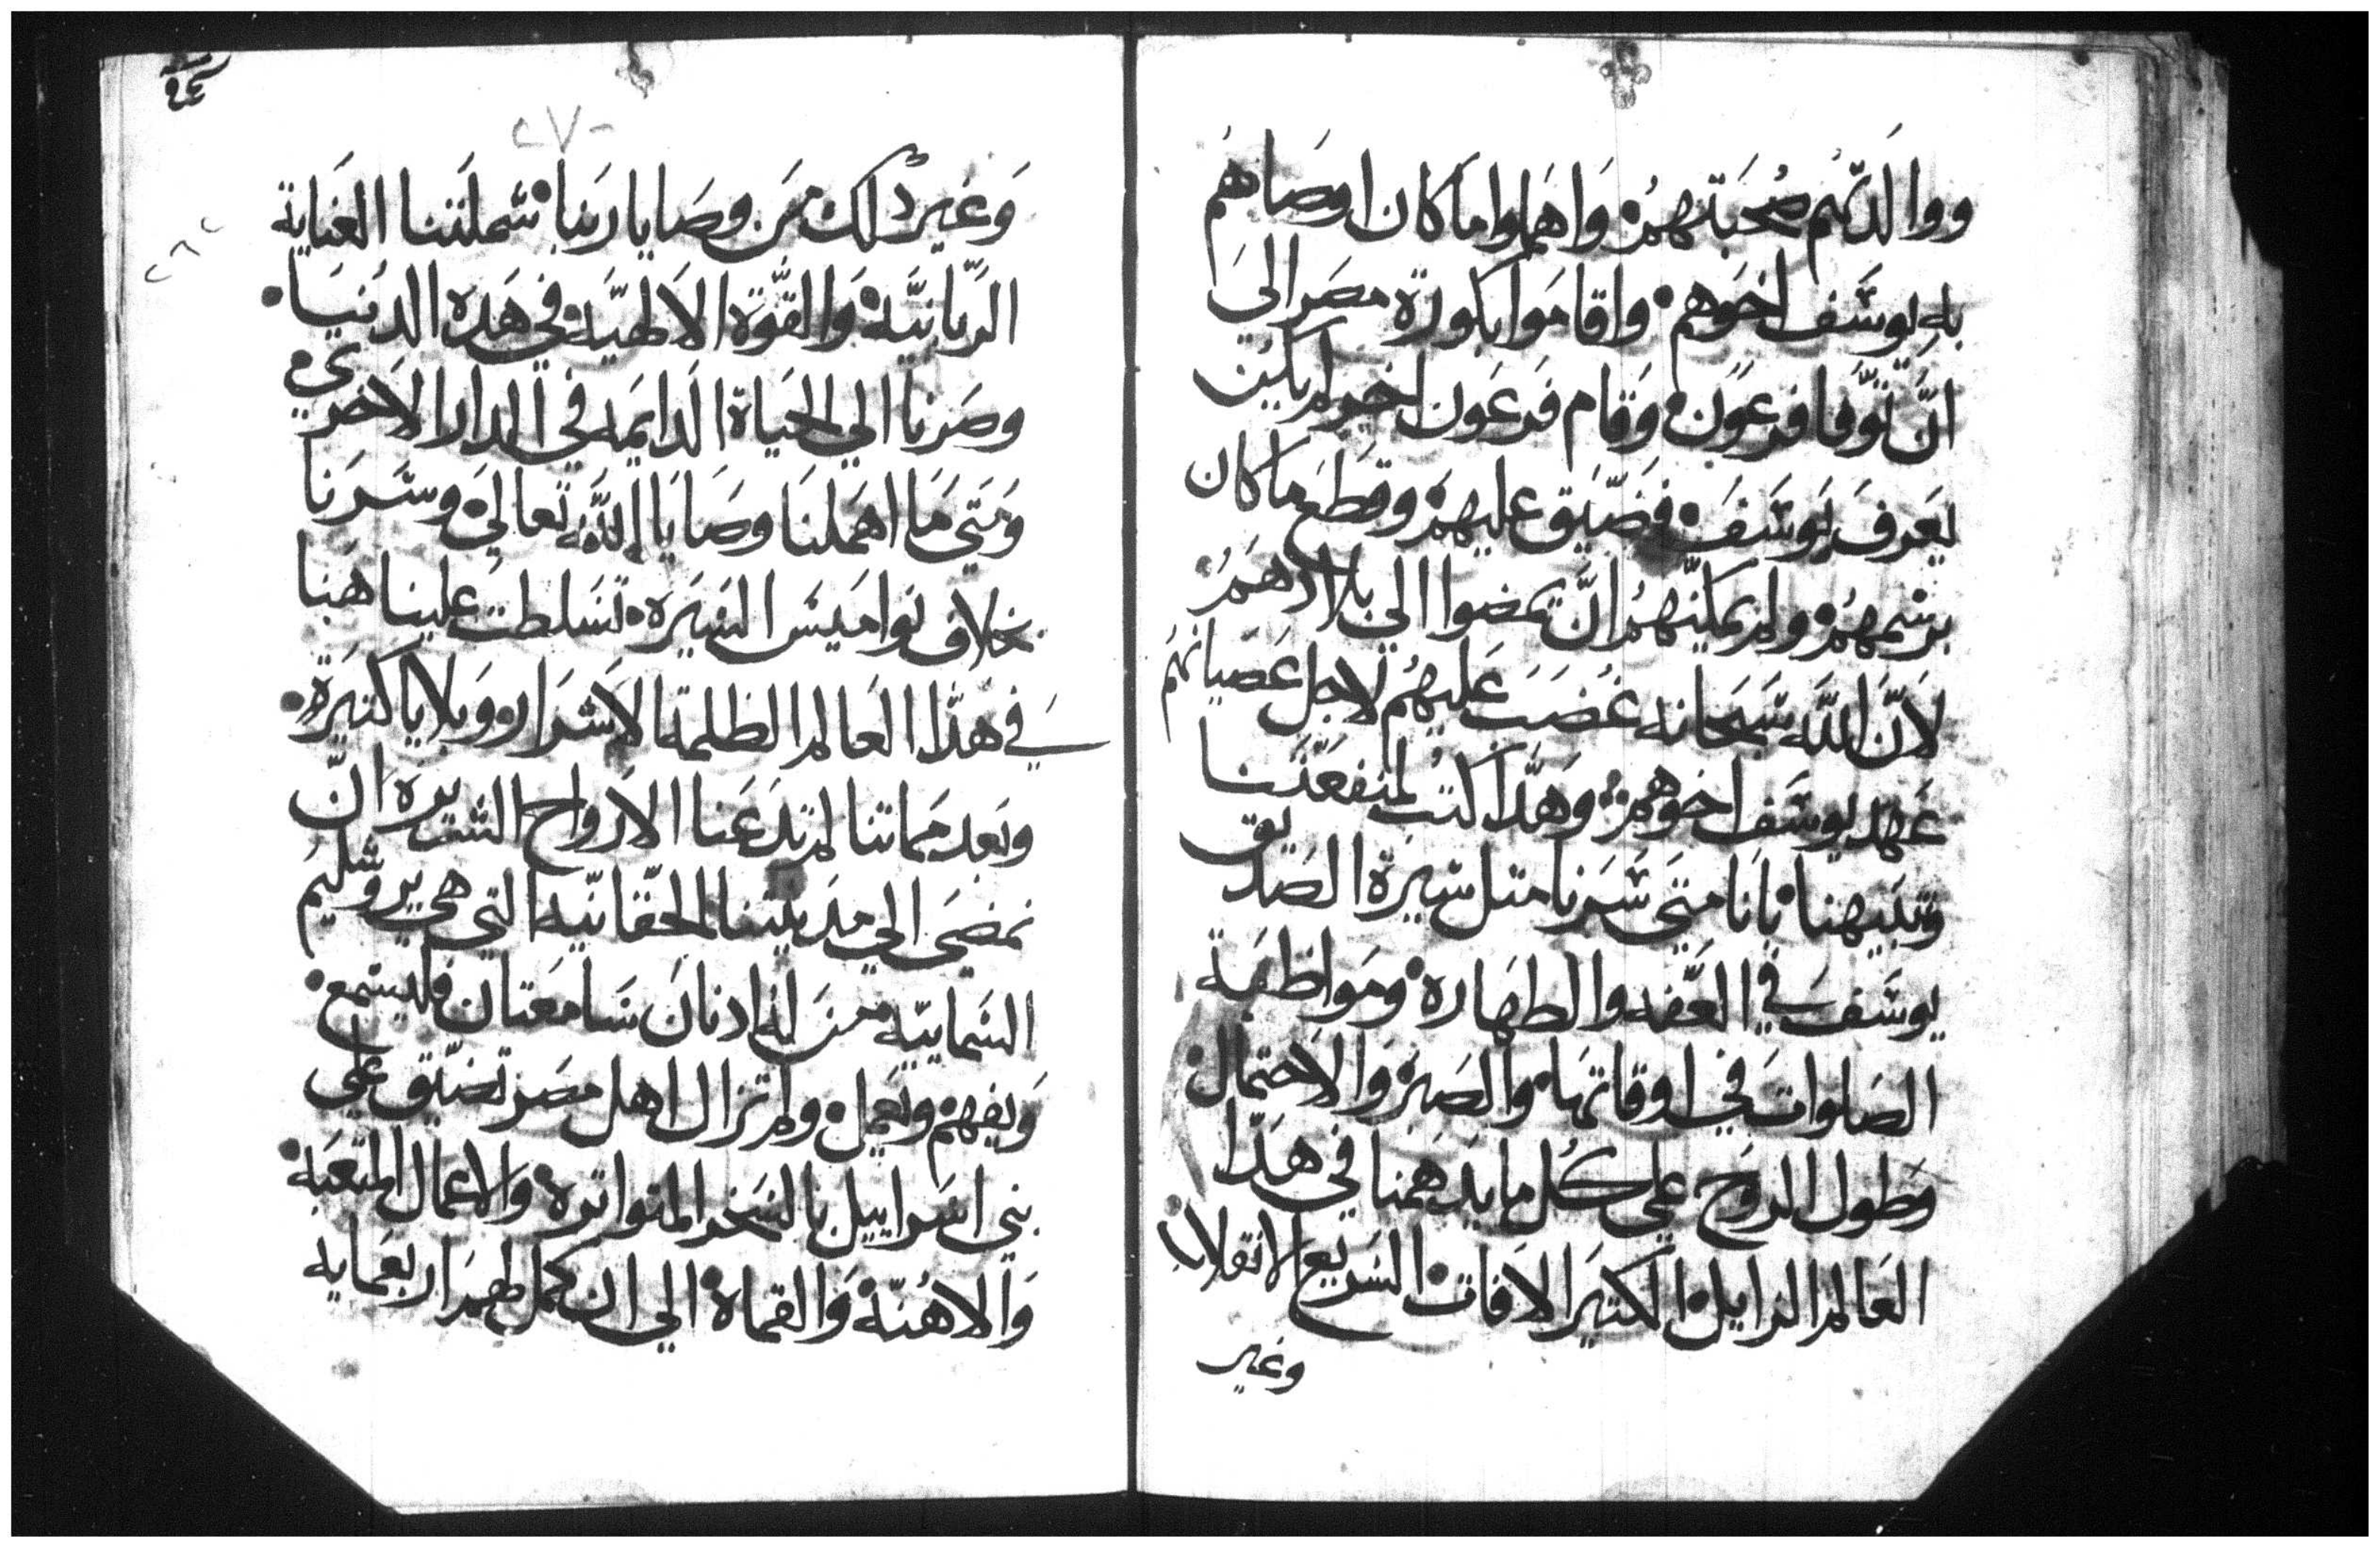 ووالدتهم صحبتهم واهملوا ما كان اوصاهم
به يوسف اخوهم واقاموا بكورة مصر الى
ان توفا فرعون وقام فرعون اخر لم يكن
يعرف يوسف فضيق عليهم وقطع ما كان
برسمهم ولم يمكنهم ان يمضوا الي بلادهم
لان الله سبحانه غضب عليهم لاجل عصيانهم
عهد يوسف اخوهم وهذا كتب لمنفعتنا
وتنبيهنا باننا متى سرنا مثل سيرة الصديق
يوسف في العفه والطهاره ومواظبة
الصلوات في اوقاتها والصبر والاحتمال
وطول الروح علي كل ما يدهمنا في هذا
العالم الزايل الكثير الافات السريع الانقلاب
وغير
٢٧٠
وغير ذلك من وصايا ربنا شملتنا العناية
الربانيه والقوة الالهيه في هذه الدنيا
وصرنا الي الحياة الدايمه في الدار الاخري
ومتي ما اهملنا وصايا الله تعالي وسرنا
بخلاف نواميس السيره تسلطت علينا هنا
في هذا العالم الظلمة الاشرار وبلايا كثيرة
وبعد مماتنا لم تدعنا الارواح الشريره ان
نمضي الي مدينتنا الحقانيه التي هي يروشليم
السماييه من له اذنان سامعتان فليسمع
ويفهم ويعمل ولم تزال اهل مصر تضيق علي
بني اسراييل بالسخر المتواتره والاعمال المتعبه
والاهنة والقماة الي ان كمل لهم اربعمايه